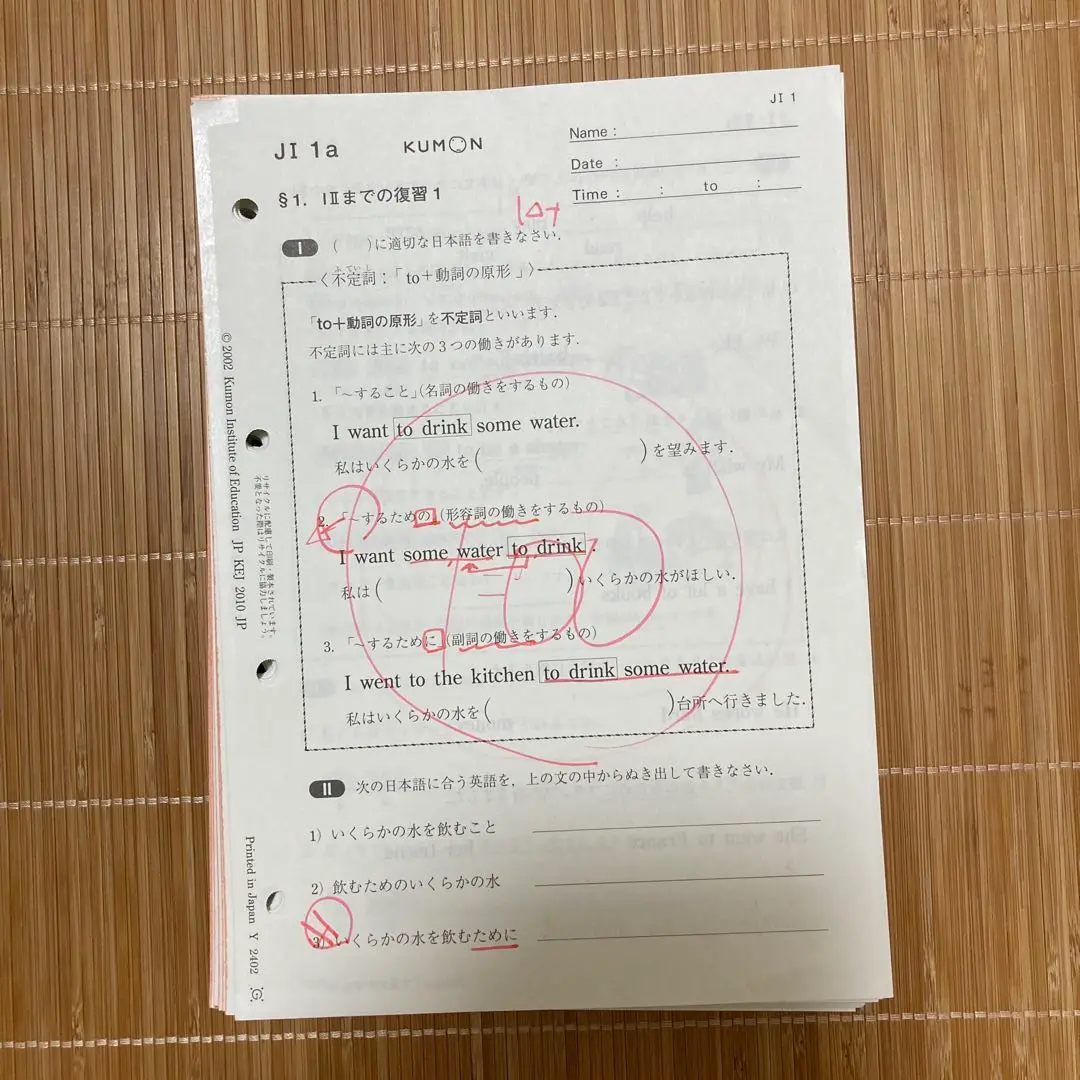 JI 1
JI 1a
KUMON
Name :
Date :
Time : : to :
§1. IⅡまでの復習1
I ( )に適切な日本語を書きなさい.
〈不定詞:「to+動詞の原形」〉
ふていし
「to+動詞の原形」を不定詞といいます.
不定詞には主に次の3つの働きがあります.
1. 「~すること」(名詞の働きをするもの)
I want to drink some water.
私はいくらかの水を( )を望みます.
2. 「~するための」(形容詞の働きをするもの)
I want some water to drink.
私は( )いくらかの水がほしい.
3. 「~するために」(副詞の働きをするもの)
I went to the kitchen to drink some water.
私はいくらかの水を( )台所へ行きました.
II 次の日本語に合う英語を,上の文の中からぬき出して書きなさい.
1) いくらかの水を飲むこと
2) 飲むためのいくらかの水
3) いくらかの水を飲むために
100
© 2002 Kumon Institute of Education JP KEJ 2010 JP
リサイクルに配慮して印刷・製本されています.
不要となった際はリサイクルに協力しましょう.
Printed in Japan Y 2402